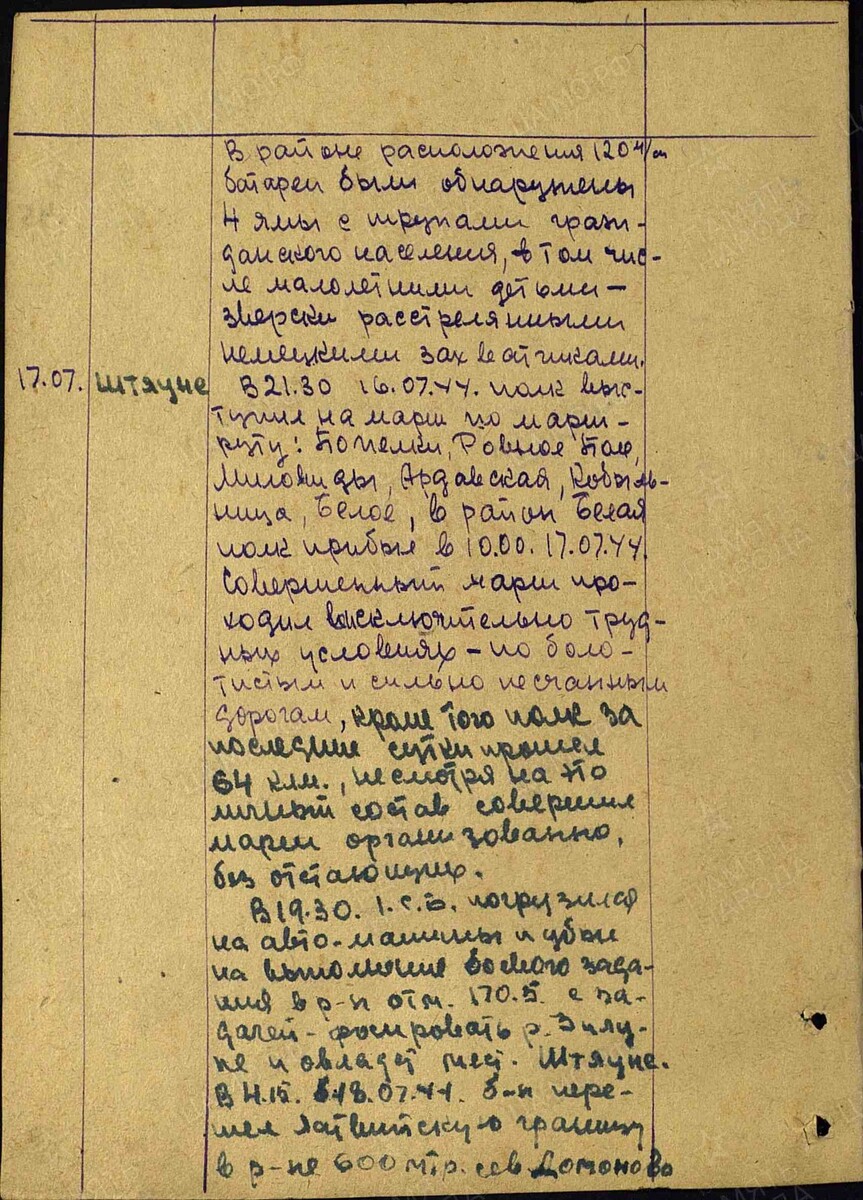 В районе расположения 120 м/м
батареи были обнаружены
4 ямы с трупами граж-
данского населения, в том чис-
ле малолетними детьми –
зверски расстрелянными
немецкими захватчиками.
17.07. Штяуне В 21.30 16.07.44. полк выс-
тупил на марш по марш-
руту: Попелки, Ровное Поле,
Миловиды, Ардавская, Кобыль-
ница, Белое, в район Белая
полк прибыл в 10.00. 17.07.44.
Совершенный марш про-
ходил в исключительно труд-
ных условиях – по боло-
тистым и сильно песчанным
дорогам, кроме того полк за
последние сутки прошел
64 клм., несмотря на это
личный состав совершил
марш организованно,
без отстающих.
В 19.30. 1.С.Б. погрузился
на авто-машины и убыл
на выполнение боевого зада-
ния в р-н отм. 170.5. с за-
дачей – форсировать р. Зилу-
пе и овладет мест. Штяуне.
В 4.15. 18.07.44. б-н пере-
шел латвийскую границу
в р-не 600 мтр. сев Домоново